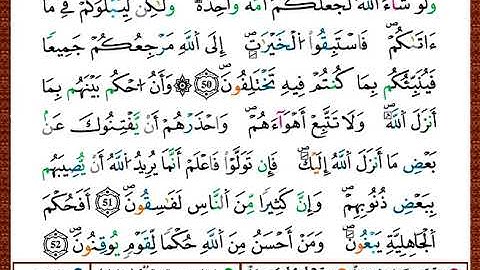 وَلَوْ شَآءَ اَ۬للَّهُ لَجَعَلَكُمْ أُمَّةً وَٰحِدَةً وَلَٰكِن لِّيَبْلُوَكُمْ فِے مَآ
ءَاتَىٰكُمْ فَاسْتَبِقُوا۟ اُ۬لْخَيْرَٰتِ إِلَى اَ۬للَّهِ مَرْجِعُكُمْ جَمِيعًا
فَيُنَبِّئُكُم بِمَا كُنتُمْ فِيهِ تَخْتَلِفُونَ ٥٠ ۞ وَأَنُ اُ۟حْكُم بَيْنَهُم بِمَآ
أَنزَلَ اَ۬للَّهُ وَلَا تَتَّبِعْ أَهْوَآءَهُمْ وَاحْذَرْهُمْ أَن يَّفْتِنُوكَ عَنۢ
بَعْضِ مَآ أَنزَلَ اَ۬للَّهُ إِلَيْكَ فَإِن تَوَلَّوْا۟ فَاعْلَمَ اَنَّمَا يُرِيدُ اُ۬للَّهُ أَن يُّصِيبَهُم
بِبَعْضِ ذُنُوبِهِمْ وَإِنَّ كَثِيرًا مِّنَ اَ۬لنَّاسِ لَفَٰسِقُونَ ٥١ أَفَحُكْمَ
اَ۬لْجَٰهِلِيَّةِ يَبْغُونَ وَمَنَ اَحْسَنُ مِنَ اَ۬للَّهِ حُكْمًا لِّقَوْمٍ يُوقِنُونَ ٥٢